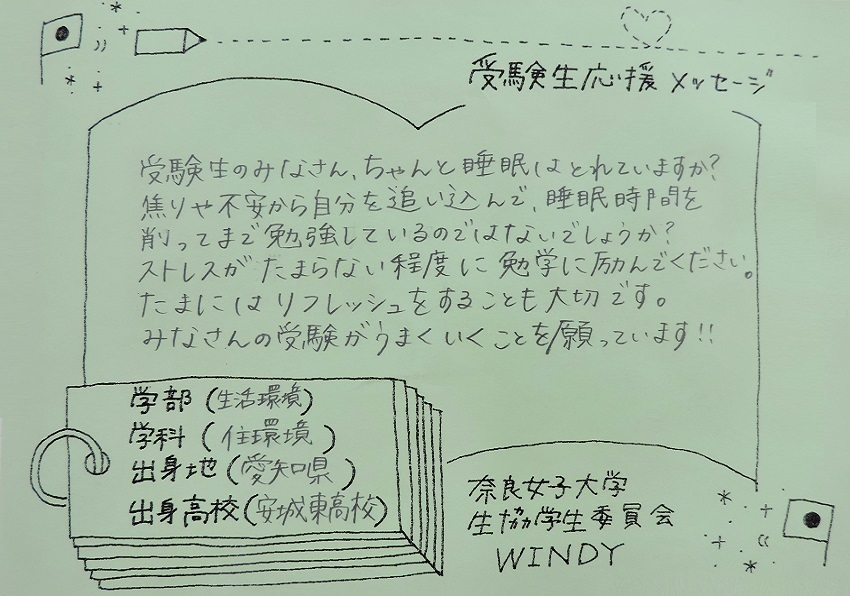 受験生応援メッセージ
受験生のみなさん、ちゃんと睡眠はとれていますか？
焦りや不安から自分を追い込んで、睡眠時間を
削ってまで勉強しているのではないでしょうか？
ストレスがたまらない程度に勉学に励んでください。
たまにはリフレッシュをすることも大切です。
みなさんの受験がうまくいくことを願っています!!
学部（生活環境）
学科（住環境）
出身地（愛知県）
出身高校（安城東高校）
奈良女子大学
生協学生委員会
WINDY